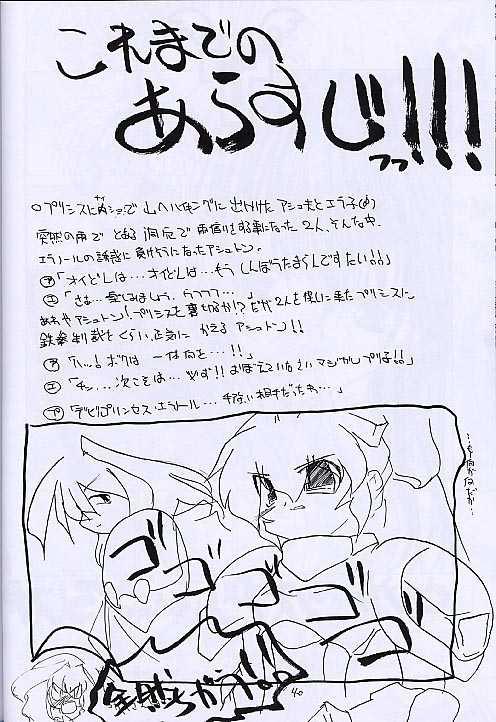 これまでの
あらすじっっ!!!
○プリシスにナイショで 山へハイキングに出かけたアシュ夫とエラ子(め)
突然の雨で とある洞窟で 雨宿りをする事になった2人。そんな中、
エラノールの誘惑に負けそうになったアシュトン。
ア「オイどんは…オイどんは…もう しんぼうたまらんですたい!!」
エ「さぁ…楽しみましょう、うフフフ…」
あわやアシュトン!プリシスを裏切るか!?だが2人を探しに来たプリシスに
鉄拳制裁をくらい、正気に かえるアシュトン!!
ア「ハ…!ボクは 一体何を…!!」
エ「チッ…次こそは…必ず!!おぼえていなさいマジカルプリ子!!」
プ「デビルプリンセス・エラノール…手強い相手だったわ…」
…も何がなにだか…
ゴゴゴゴゴ
全然ちがう!!
40